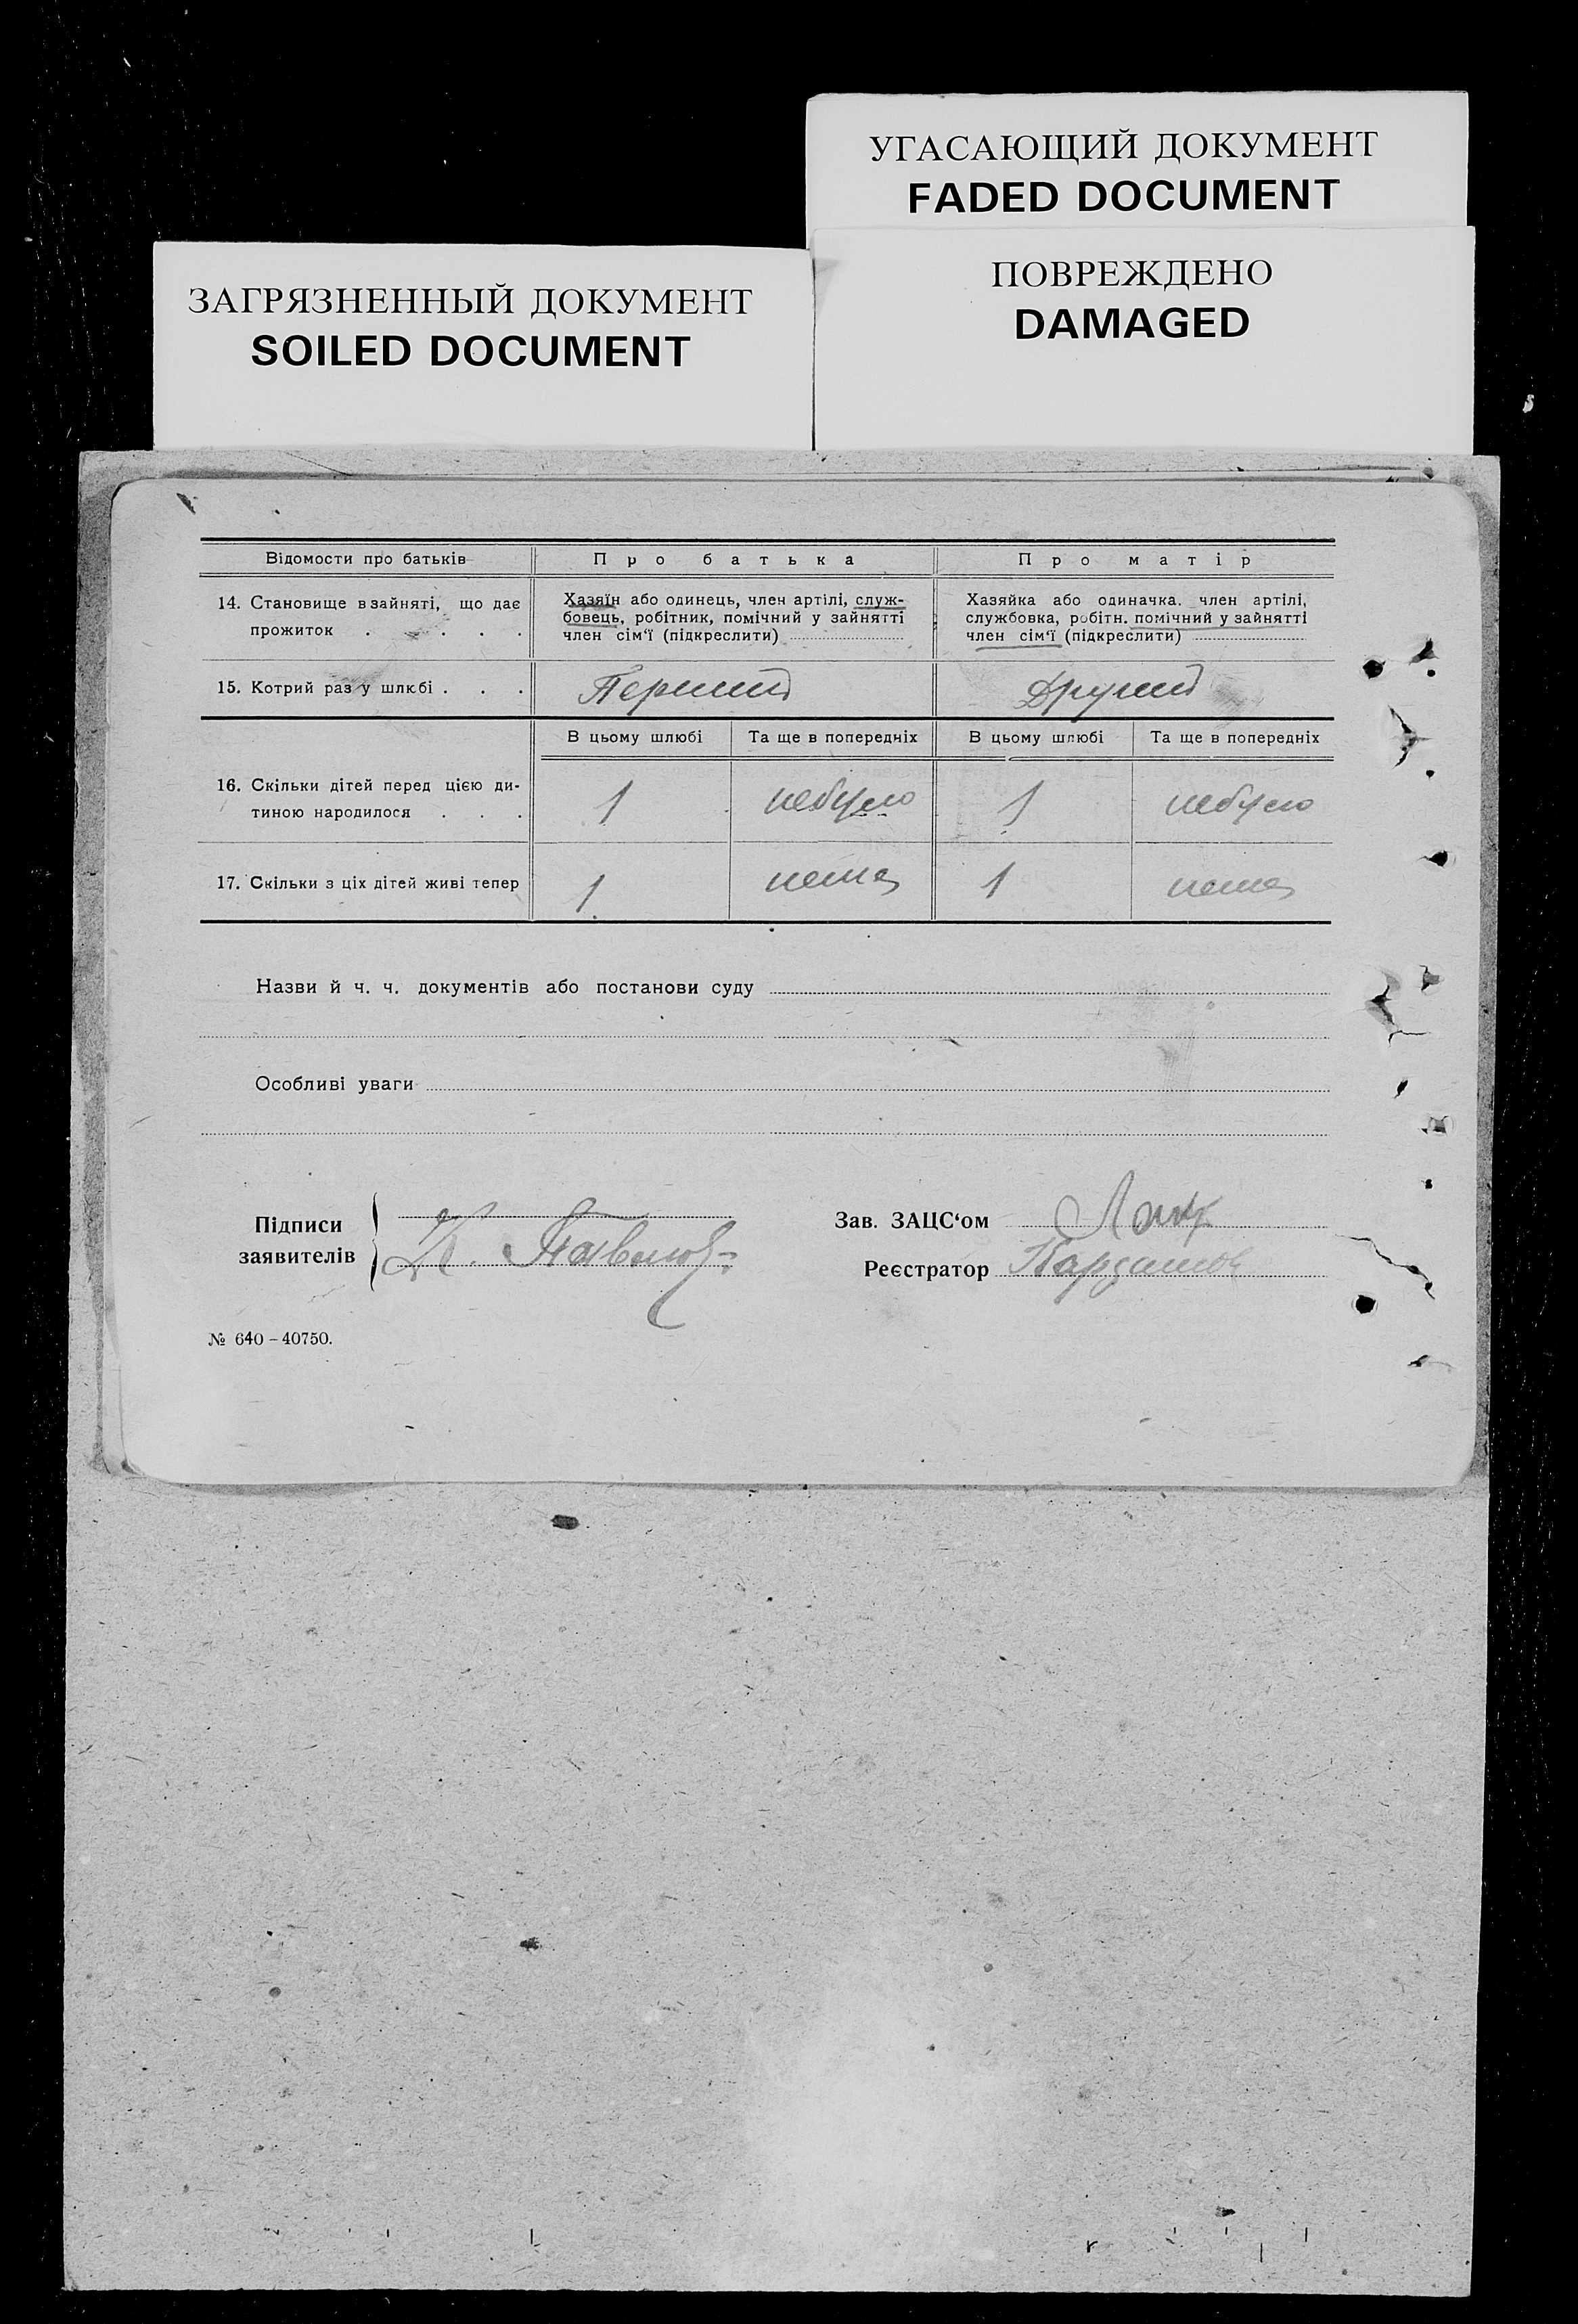 УГАСАЮЩИЙ ДОКУМЕНТ
FADED DOCUMENT
ПОВРЕЖДЕНО
DAMAGED
ЗАГРЯЗНЕННЫЙ ДОКУМЕНТ
SOILED DOCUMENT
Відомости про батьків
Про батька
Про матір
14. Становище в зайняті, що дає
прожиток . . . . .
Хазяїн або одинець, член артілі, служ-
бовець, робітник, помічний у зайнятті
член сім'ї (підкреслити)
Хазяйка або одиначка. член артілі,
службовка, робітн. помічний у зайнятті
член сім'ї (підкреслити)
15. Котрий раз у шлюбі . . .
Перший
Другий
В цьому шлюбі
Та ще в попередніх
В цьому шлюбі
Та ще в попередніх
16. Скільки дітей перед цією ди-
тиною народилося . . .
1
небуло
1
небуло
17. Скільки з ціх дітей живі тепер
1
нема
1
нема
Назви й ч. ч. документів або постанови суду
Особливі уваги
Підписи
заявителів
Зав. ЗАЦС'ом
Реєстратор
№ 640-40750.